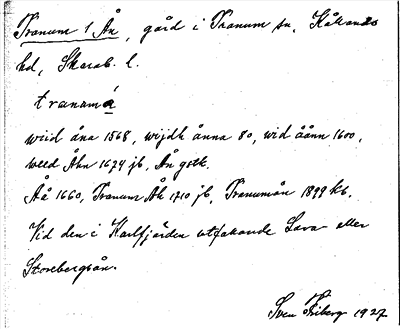 Tranum 1 Ån, gård i Tranum sn, Kåkands
hd, Skarab. l.
tranumá
wiid åna 1568, wijdh ånna 80, wid åånn 1600,
weed Åhn 1674 jb, Ån gstk.
Åå 1660, Tranum Åh 1710 jb, Tranumån 1899 kb.
Vid den i Karlfjärden utfakande Lava- eller
Storebergsån.
Sven Friberg 1927